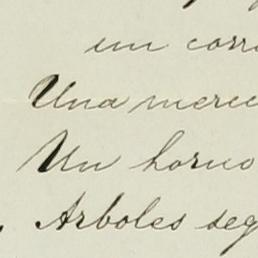 un corr
Una mere
Un horno
Arboles seg